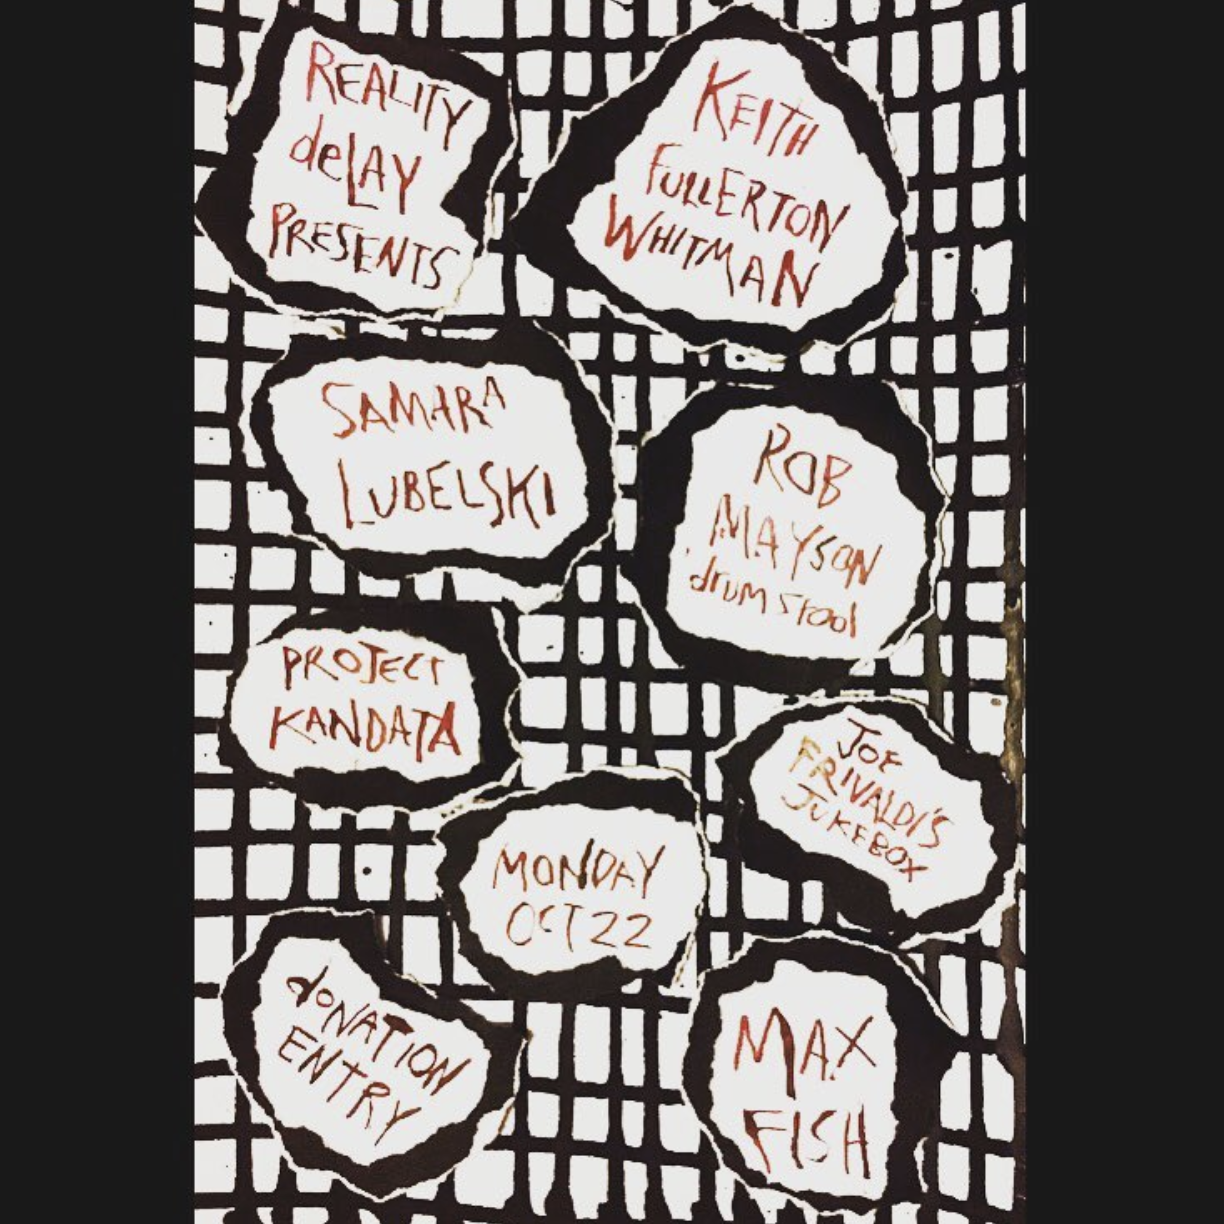 REALITY
deLAY
PRESENTS
KEITH
FULLERTON
WHITMAN
SAMARA
LUBELSKI
ROB
MAYSON
drum stool
PROJECT
KANDATA
JOE
FRIVALDI'S
JUKEBOX
MONDAY
OCT 22
dONATION
ENTRY
MAX
FISH